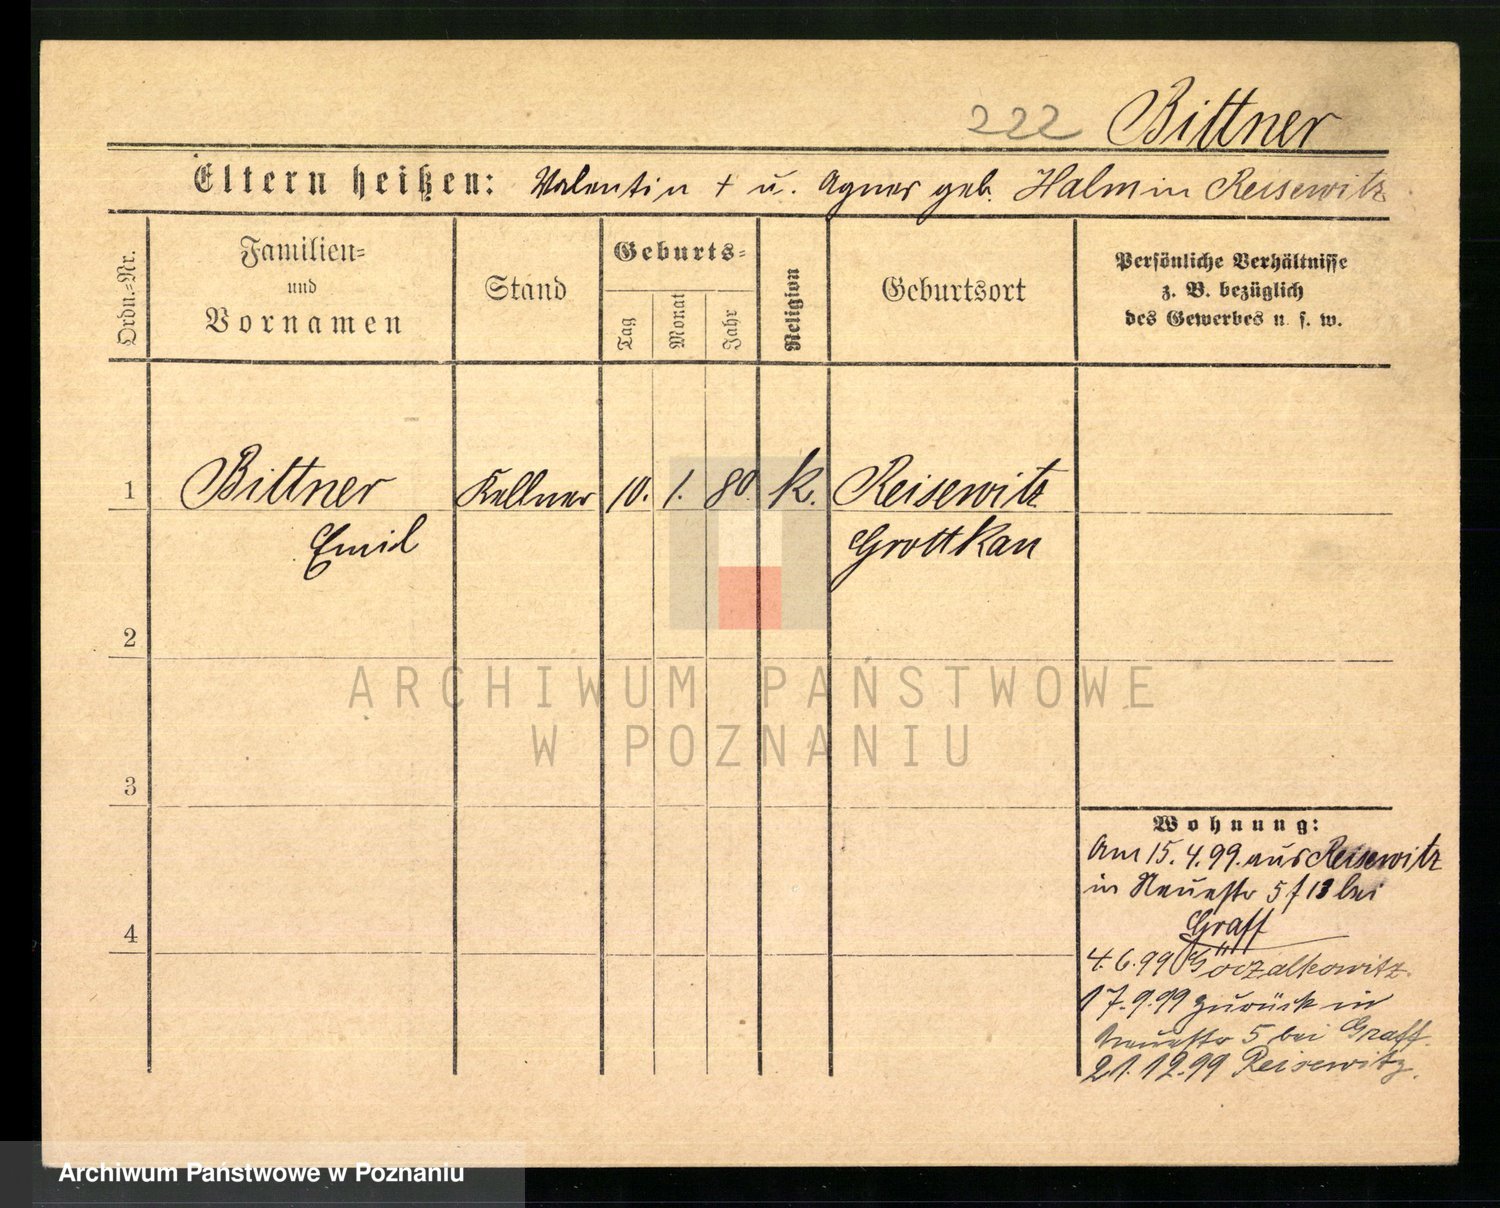 222 Bittner
Eltern heißen: Valentin + u. Agnes geb. Halm in Reisewitz
Ordn.-Nr.
Familien-
und
Vornamen
Stand
Geburts-
Tag
Monat
Jahr
Religion
Geburtsort
Persönliche Verhältnisse
z. B. bezüglich
des Gewerbes u. s. w.
1 Bittner Kellner 10. 1. 80. k. Reisewitz
Emil Grottkau
2
3
4
Wohnung:
Am 15.4.99. aus Reisewitz
in Neuestr 5 f 13 bei
Graff
4.6.99 Goczalkowitz.
17.9.99 zurück in
Neuestr 5 bei Graff.
21.12.99 Reisewitz.
ARCHIWUM PAŃSTWOWE
W POZNANIU
Archiwum Państwowe w Poznaniu